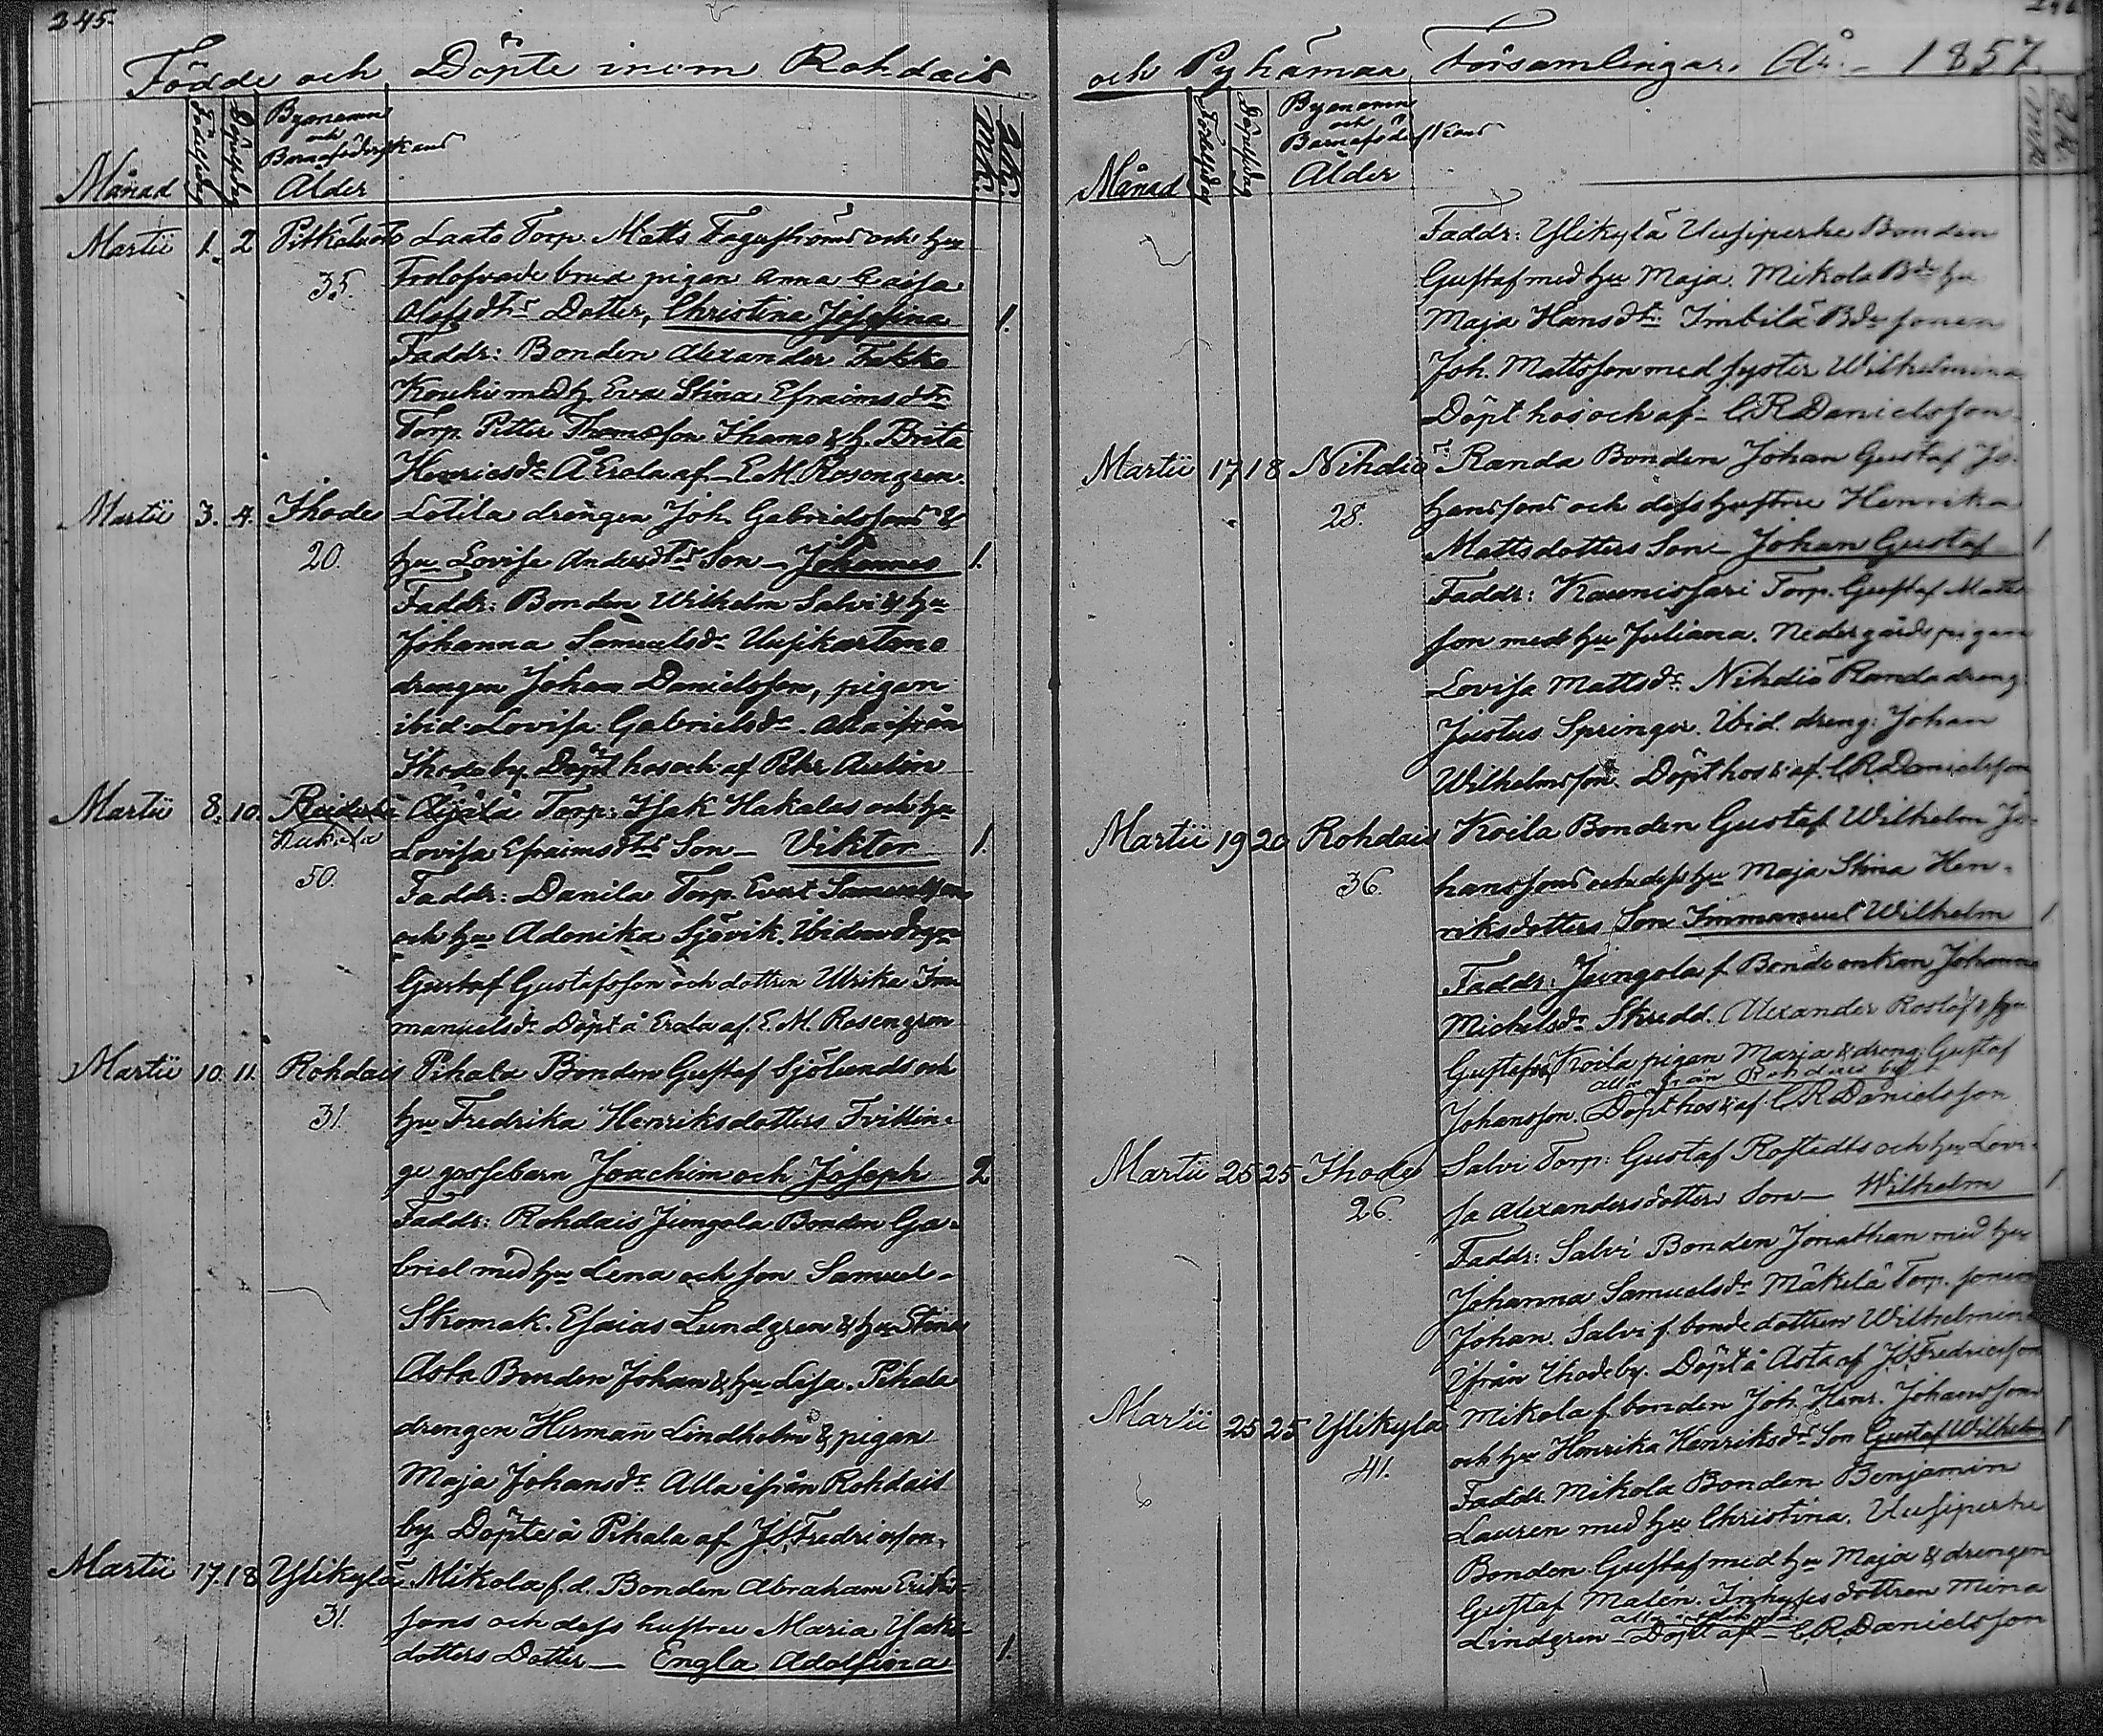 245.
Födde och Döpte inom Rohdais
Månad
Födelsedag
Döpelsedag
Bynamn
och
Barnaföderskans
Ålder
Mk.
Qk.
Martii 1. 2 Laato Torp. Matts Fagerströms och hu
35. brud pigan Anna Caisa
Olofsdtrs Dotter, Christina Josefina 1.
Faddr: Bonden Alexander
Kouhi med h. Eva Stina Efraimsdtr
Torp. Petter Thomasson Ihamo & h. Brita
Henricsdr Å Erola af E. M. Rosengren.
Martii 3. 4. Ihode Lotila drengen Joh. Gabrielssons &
20. hu Lovisa Andersdtrs Son – Johannes 1.
Faddr: Bonden Wilhelm Salvi & hu
Johanna Samuelsdr Uusikartano
drengen Johan Danielsson, pigan
ibid. Lovisa Gabrielsdr. alla ifrån
Ihode by. Döpt hos och af Pkr Aulin
Martii 8. 10. Äyälä Torp: Isak Hakalas och hu
50. Lovisa Efraimsdtrs Son – Viktor 1.
Faddr: Danila Torp. Evert Samuelsson
och hu Adonika Sjövik. Ibidem
Gustaf Gustafsson och dottren Ulrika Im
manuelsdr. Döpt å Erola af E. M. Rosengren
Martii 10. 11. Rohdais Pihala Bonden Gustaf Sjölunds och
31. hu Fredrika Henriksdotters Tvillin-
ge gossebarn Joachim och Joseph 2
Faddr: Rohdais Jungola Bonden Ga-
briel med hu Lena och son Samuel –
Skomak. Esaias Lundgren & hu Stina
Asta Bonden Johan & hu Lisa. Pihala
drengen Herman Lindholm & pigan
Maja Johansdr. Alla ifrån Rohdais
by. Döpte å Pihala af J. S. Fredricsson.
Martii 17. 18. Ylikylä Mikola f. d. Bonden Abraham Eriks-
31. sons och dess hustru Maria Isaks
dotters Dotter – Engla Adolfina 1.
och Pyhämaa Församlingar. År. – 1857
Månad
Födelsedag
Döpelsedag
Bynamn
och
Barnaföderskans
Ålder
Mk.
Qk.
Faddr: Ylikylä Uusiperhe Bonden
Gustaf med hu Maja. Mikola Bde hu
Maja Hansdtr. Imbilä Bde sonen
Joh. Mattsson med syster Wilhelmina
Döpt hos och af – C. R. Danielsson.
Martii 17 18 Nihdiö Randa Bonden Johan Gustaf Jo-
28. hanssons och dess hustru Henrika
Mattsdotters Son – Johan Gustaf 1
Faddr: Kaunissari Torp. Gustaf Matts
son med hu Juliana. Nedergårds pigan
Lovisa Mattsdr. Nihdiö Randa dreng
Justus Springer. Ibid. dreng: Johan
Wilhelmsson. Döpt hos & af. C. R. Danielsson
Martii 19 20 Rohdais Koila Bonden Gustaf Wilhelm Jo-
36. hanssons och dess hu Maja Stina Hen-
riksdotters Son Immanuel Wilhelm 1
Faddr. Jungola f. Bonde enkan Johanna
Michelsdr. Skredd. Alexander Roslöf & hu
Gustafva Koila pigan Marja & dreng: Gustaf
alla från Rohdais by
Johansson. Döpt hos & af C. R. Danielsson
Martii 25 25 Ihode Salvi Torp: Gustaf Rostedts och hu Lovi-
26. sa Alexandersdotters Son – Wilhelm 1
Faddr: Salvi Bonden Jonathan med hu
Johanna Samuelsdr Mäkelä Torp. sonen
Johan. Salvi f. bonde dottren Wilhelmina
Ifrån Ihode by. Döpt å Asta af J. S. Fredricsson
Martii 25 25 Ylikylä Mikola f. bonden Joh. Henr. Johanssons
41. och hu Henrika Henriksdrs Son Gustaf Wilhelm 1
Faddr. Mikola Bonden Benjamin
Lauren med hu Christina. Uusiperhe
Bonden Gustaf med hu Maja & drengen
Gustaf Malén. Inhyses dottren Mina
Lindgren – Döpt af – C. R. Danielsson